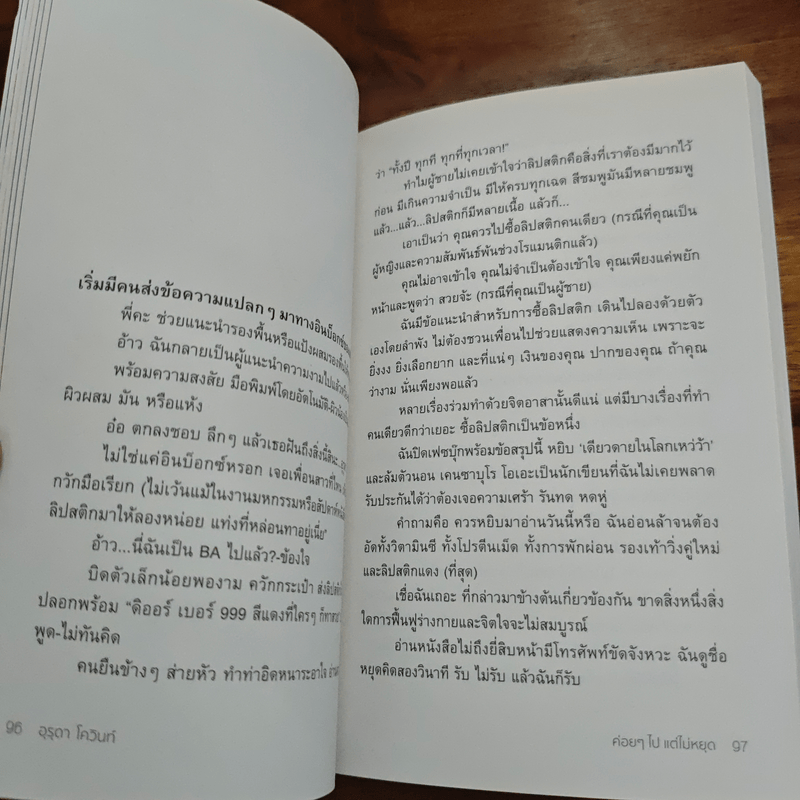 เริ่มมีคนส่งข้อความแปลกๆ มาทางอินบ็อกซ์
พี่คะ ช่วยแนะนำรองพื้นหรือแป้งผสมรองพื้น
อ้าว ฉันกลายเป็นผู้แนะนำความงามไปแล้ว
พร้อมความสงสัย มือพิมพ์โดยอัตโนมัติ-ผิว
ผิวผสม มัน หรือแห้ง
อ๋อ ตกลงชอบ ลึกๆ แล้วเธอฝันถึงสิ่งนี้สินะ
ไม่ใช่แค่อินบ็อกซ์หรอก เจอเพื่อนสาวที่ไหน
กวักมือเรียก (ไม่เว้นแม้ในงานมหกรรมหรือสัปดาห์หนังสือ
ลิปสติกมาให้ลองหน่อย แท่งที่หล่อนทาอยู่เนี่ย"
อ้าว...นี่ฉันเป็น BA ไปแล้ว?-ข้องใจ
บิดตัวเล็กน้อยพองาม ควักกระเป๋า ส่งลิปสติก
ปลอกพร้อม "ดิออร์ เบอร์ 999 สีแดงที่ใครๆ ก็ทา
พูด-ไม่ทันคิด
คนยืนข้างๆ ส่ายหัว ทำท่าอิดหนาระอาใจ
96 อุรุดา โควินท์
ว่า "ทั้งปี ทุกที ทุกที่ทุกเวลา!"
ทำไมผู้ชายไม่เคยเข้าใจว่าลิปสติกคือสิ่งที่เราต้องมีมากไว้
ก่อน มีเกินความจำเป็น มีให้ครบทุกเฉด สีชมพูมันมีหลายชมพู
แล้ว...แล้ว...ลิปสติกก็มีหลายเนื้อ แล้วก็...
เอาเป็นว่า คุณควรไปซื้อลิปสติกคนเดียว (กรณีที่คุณเป็น
ผู้หญิงและความสัมพันธ์พ้นช่วงโรแมนติกแล้ว)
คุณไม่อาจเข้าใจ คุณไม่จำเป็นต้องเข้าใจ คุณเพียงแค่พยัก
หน้าและพูดว่า สวยจ้ะ (กรณีที่คุณเป็นผู้ชาย)
ฉันมีข้อแนะนำสำหรับการซื้อลิปสติก เดินไปลองด้วยตัว
เองโดยลำพัง ไม่ต้องชวนเพื่อนไปช่วยแสดงความเห็น เพราะจะ
ยิ่งงง ยิ่งเลือกยาก และที่แน่ๆ เงินของคุณ ปากของคุณ ถ้าคุณ
ว่างาม นั่นเพียงพอแล้ว
หลายเรื่องร่วมทำด้วยจิตอาสานั้นดีแน่ แต่มีบางเรื่องที่ทำ
คนเดียวดีกว่าเยอะ ซื้อลิปสติกเป็นข้อหนึ่ง
ฉันปิดเฟซบุ๊กพร้อมข้อสรุปนี้ หยิบ 'เดียวดายในโลกเหว่ว้า'
และล้มตัวนอน เคนซาบุโร โอเอะเป็นนักเขียนที่ฉันไม่เคยพลาด
รับประกันได้ว่าต้องเจอความเศร้า รันทด หดหู่
คำถามคือ ควรหยิบมาอ่านวันนี้หรือ ฉันอ่อนล้าจนต้อง
อัดทั้งวิตามินซี ทั้งโปรตีนเม็ด ทั้งการพักผ่อน รองเท้าวิ่งคู่ใหม่
และลิปสติกแดง (ที่สุด)
เชื่อฉันเถอะ ที่กล่าวมาข้างต้นเกี่ยวข้องกัน ขาดสิ่งหนึ่งสิ่ง
ใดการฟื้นฟูร่างกายและจิตใจจะไม่สมบูรณ์
อ่านหนังสือไม่ถึงยี่สิบหน้ามีโทรศัพท์ขัดจังหวะ ฉันดูชื่อ
หยุดคิดสองวินาที รับ ไม่รับ แล้วฉันก็รับ
ค่อยๆ ไป แต่ไม่หยุด 97